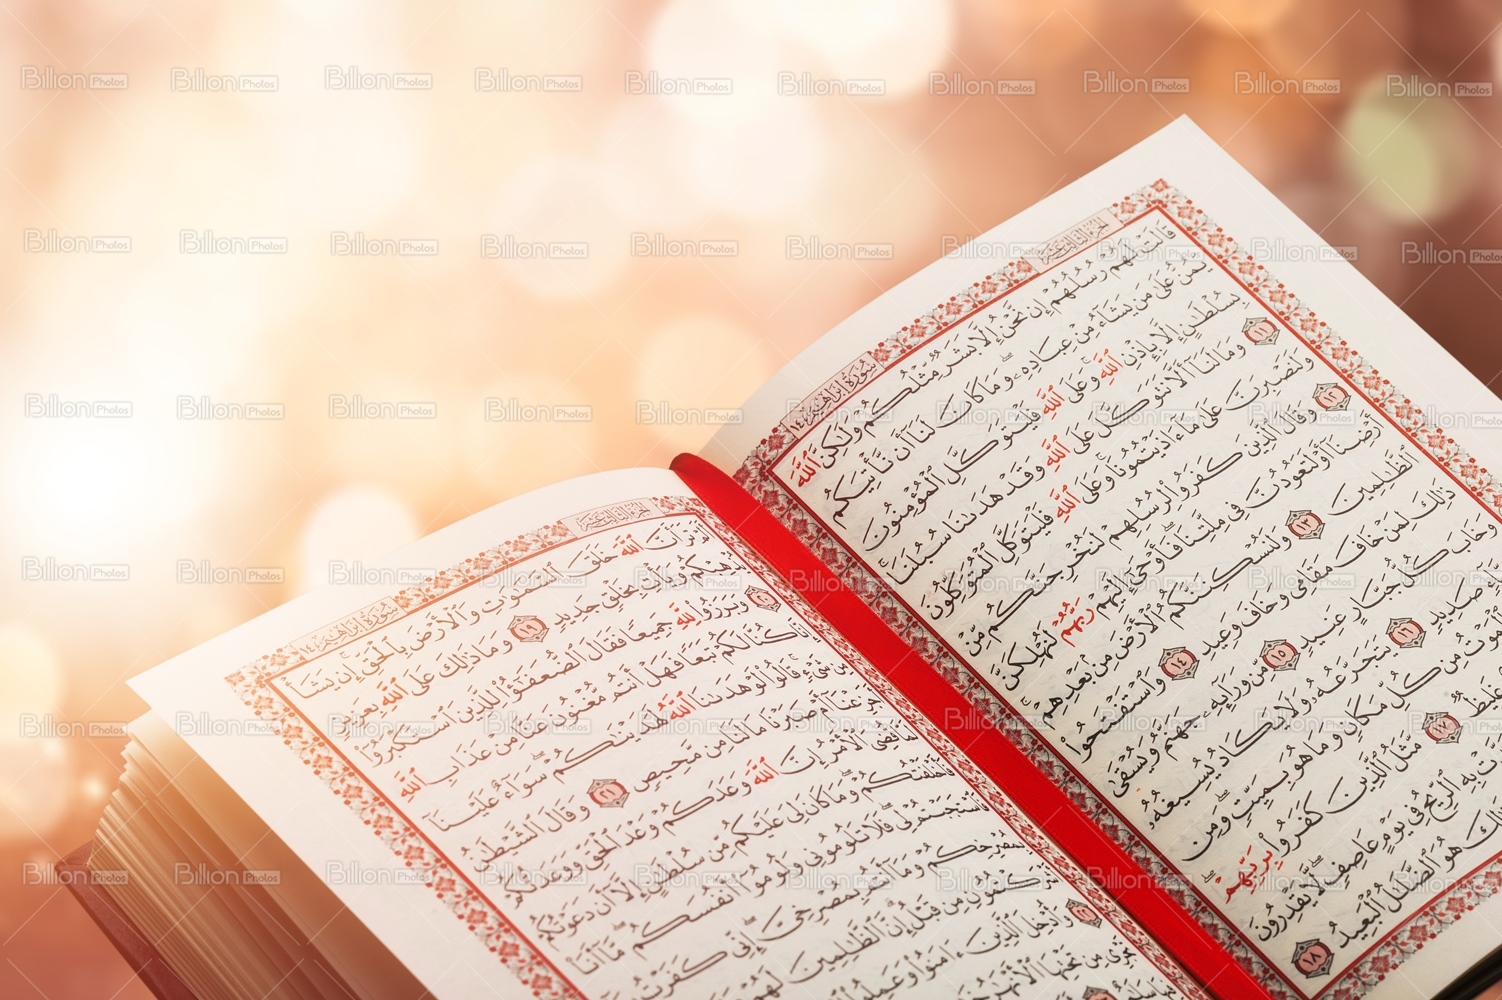 الجزء الثالث عشر
سورة إبراهيم ١٤
قَالَتْ لَهُمْ رُسُلُهُمْ إِن نَّحْنُ إِلَّا بَشَرٌ مِّثْلُكُمْ وَلَٰكِنَّ ٱللَّهَ
يَمُنُّ عَلَىٰ مَن يَشَآءُ مِنْ عِبَادِهِۦ وَمَا كَانَ لَنَآ أَن نَّأْتِيَكُم
بِسُلْطَٰنٍ إِلَّا بِإِذْنِ ٱللَّهِ وَعَلَى ٱللَّهِ فَلْيَتَوَكَّلِ ٱلْمُؤْمِنُونَ
١١ وَمَا لَنَآ أَلَّا نَتَوَكَّلَ عَلَى ٱللَّهِ وَقَدْ هَدَىٰنَا سُبُلَنَا
وَلَنَصْبِرَنَّ عَلَىٰ مَآ ءَاذَيْتُمُونَا وَعَلَى ٱللَّهِ فَلْيَتَوَكَّلِ ٱلْمُتَوَكِّلُونَ
١٢ وَقَالَ ٱلَّذِينَ كَفَرُوا۟ لِرُسُلِهِمْ لَنُخْرِجَنَّكُم مِّنْ
أَرْضِنَآ أَوْ لَتَعُودُنَّ فِى مِلَّتِنَا فَأَوْحَىٰٓ إِلَيْهِمْ رَبُّهُمْ لَنُهْلِكَنَّ
ٱلظَّٰلِمِينَ ١٣ وَلَنُسْكِنَنَّكُمُ ٱلْأَرْضَ مِنۢ بَعْدِهِمْ
ذَٰلِكَ لِمَنْ خَافَ مَقَامِى وَخَافَ وَعِيدِ ١٤ وَٱسْتَفْتَحُوا۟
وَخَابَ كُلُّ جَبَّارٍ عَنِيدٍ ١٥ مِّن وَرَآئِهِۦ جَهَنَّمُ وَيُسْقَىٰ
صَدِيدٍ ١٦ يَتَجَرَّعُهُۥ وَلَا يَكَادُ يُسِيغُهُۥ
ٱلْمَوْتُ مِن كُلِّ مَكَانٍ وَمَا هُوَ بِمَيِّتٍ وَمِن
غَلِيظٌ ١٧ مَّثَلُ ٱلَّذِينَ كَفَرُوا۟ بِرَبِّهِمْ
بِهِ ٱلرِّيحُ فِى يَوْمٍ عَاصِفٍ لَّا يَقْدِرُونَ
هُوَ ٱلضَّلَٰلُ ٱلْبَعِيدُ ١٨
الجزء الثالث عشر
سورة إبراهيم ١٤
أَلَمْ تَرَ أَنَّ ٱللَّهَ خَلَقَ ٱلسَّمَٰوَٰتِ وَٱلْأَرْضَ بِٱلْحَقِّ إِن يَشَأْ
يُذْهِبْكُمْ وَيَأْتِ بِخَلْقٍ جَدِيدٍ ١٩ وَمَا ذَٰلِكَ عَلَى ٱللَّهِ بِعَزِيزٍ
٢٠ وَبَرَزُوا۟ لِلَّهِ جَمِيعًا فَقَالَ ٱلضُّعَفَٰٓؤُا۟ لِلَّذِينَ ٱسْتَكْبَرُوٓا۟
إِنَّا كُنَّا لَكُمْ تَبَعًا فَهَلْ أَنتُم مُّغْنُونَ عَنَّا مِنْ عَذَابِ ٱللَّهِ
مِن شَىْءٍ قَالُوا۟ لَوْ هَدَىٰنَا ٱللَّهُ لَهَدَيْنَٰكُمْ سَوَآءٌ عَلَيْنَآ
أَجَزِعْنَآ أَمْ صَبَرْنَا مَا لَنَا مِن مَّحِيصٍ ٢١ وَقَالَ ٱلشَّيْطَٰنُ
لَمَّا قُضِىَ ٱلْأَمْرُ إِنَّ ٱللَّهَ وَعَدَكُمْ وَعْدَ ٱلْحَقِّ وَوَعَدتُّكُمْ
فَأَخْلَفْتُكُمْ وَمَا كَانَ لِىَ عَلَيْكُم مِّن سُلْطَٰنٍ إِلَّآ أَن دَعَوْتُكُمْ
فَٱسْتَجَبْتُمْ لِى فَلَا تَلُومُونِى وَلُومُوٓا۟ أَنفُسَكُم مَّآ أَنَا۠
بِمُصْرِخِكُمْ وَمَآ أَنتُم بِمُصْرِخِىَّ إِنِّى كَفَرْتُ
أَشْرَكْتُمُونِ مِن قَبْلُ إِنَّ ٱلظَّٰلِمِينَ لَهُمْ
٢٢ وَأُدْخِلَ ٱلَّذِينَ ءَامَنُوا۟ وَعَمِلُوا۟
تَجْرِى مِن تَحْتِهَا ٱلْأَنْهَٰرُ
Billion Photos